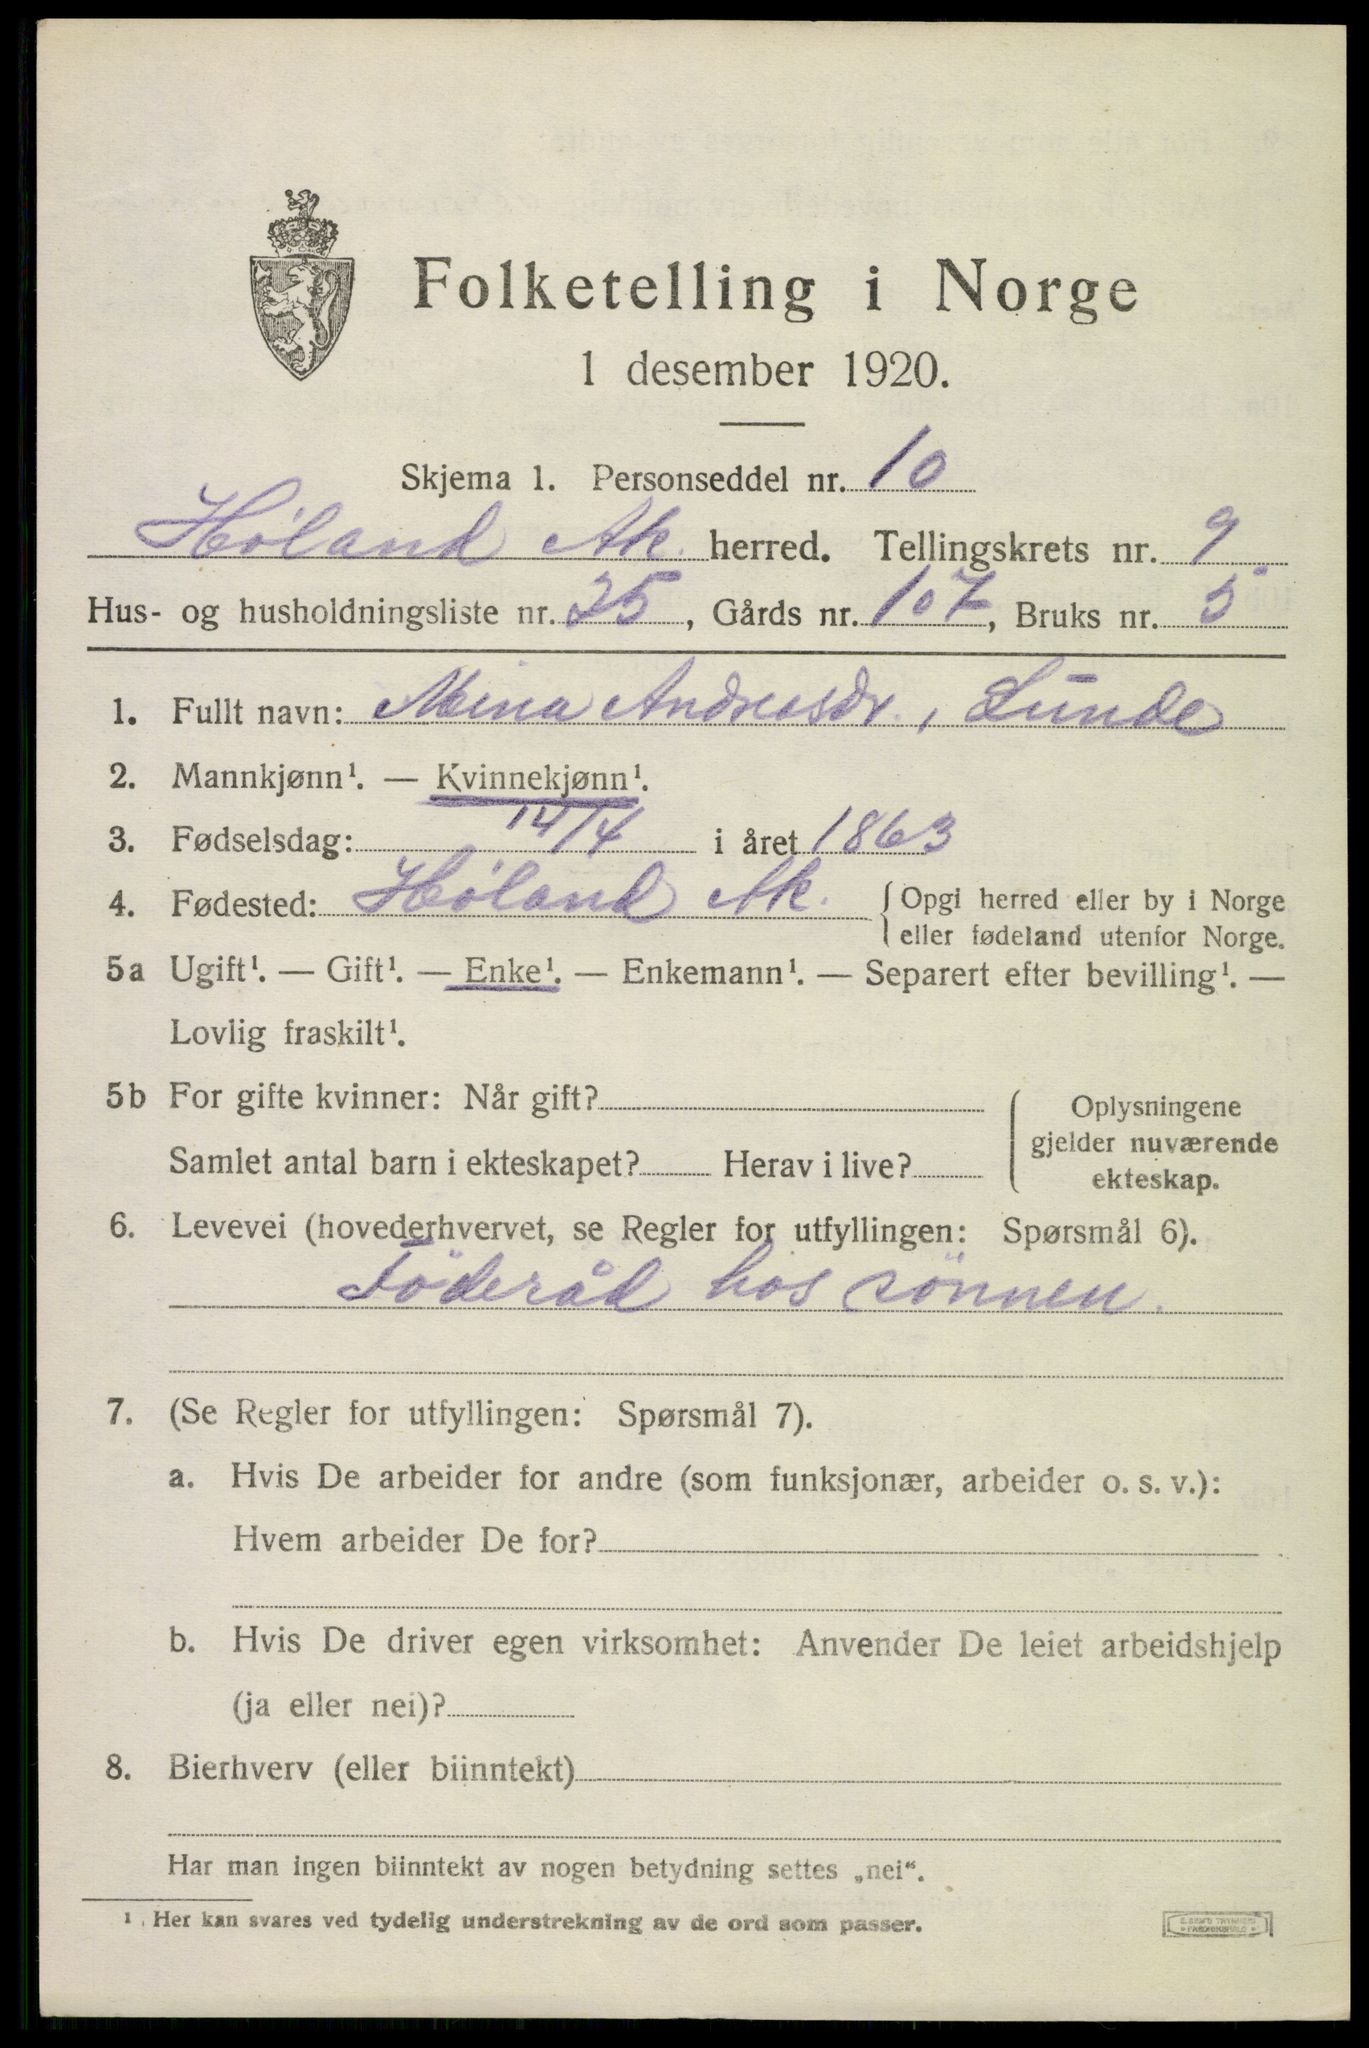 Folketelling i Norge
1 desember 1920.
Skjema 1. Personseddel nr. 10
Høland Ak. herred. Tellingskrets nr. 9
Hus- og husholdningsliste nr. 25, Gårds nr. 107, Bruks nr. 5
1. Fullt navn: Mina Andreasdr., Lunde
2. Mannkjønn¹. — Kvinnekjønn¹.
3. Fødselsdag: 14/4 i året 1863
4. Fødested: Høland Ak. { Opgi herred eller by i Norge
eller fødeland utenfor Norge.
5a Ugift¹. — Gift¹. — Enke¹. — Enkemann¹. — Separert efter bevilling¹. —
Lovlig fraskilt¹.
5b For gifte kvinner: Når gift?
Samlet antal barn i ekteskapet? Herav i live?
Oplysningene
gjelder nuværende
ekteskap.
6. Levevei (hovederhvervet, se Regler for utfyllingen: Spørsmål 6).
Föderåd hos sönnen.
7. (Se Regler for utfyllingen: Spørsmål 7).
a. Hvis De arbeider for andre (som funksjonær, arbeider o. s. v.):
Hvem arbeider De for?
b. Hvis De driver egen virksomhet: Anvender De leiet arbeidshjelp
(ja eller nei)?
8. Bierhverv (eller biinntekt)
Har man ingen biinntekt av nogen betydning settes „nei“.
¹ . Her kan svares ved tydelig understrekning av de ord som passer.